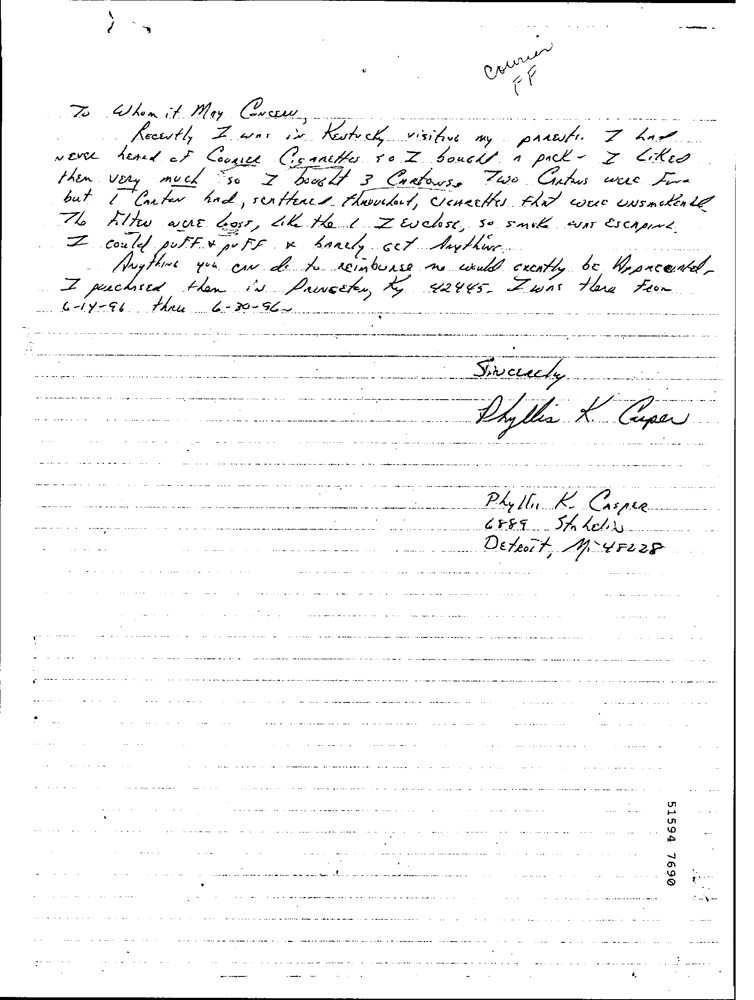 Courier
FF
To Whom it May Concern,
Recently I was in Kentucky visiting my parents. I had
never heard of Courier Cigarettes so I bought a pack - I liked
them very much so I bought 3 Cartons. Two Cartons were Fine
but 1 Carton had, scattered throughout, cigarettes that were unsmokeable
The Filter were loose, like the 1 I enclose, so smoke was escaping.
I could puff & puff & barely get Anything.
Anything you can do to reimburse me would greatly be Appreciated -
I purchased them in Princeton, Ky 42445 - I was there From
6-14-96 thru 6-30-96 -
Sincerely
Phyllis K. Casper
Phyllis K. Casper
6889 Stahelin
Detroit, Mi 48228
51594 7690